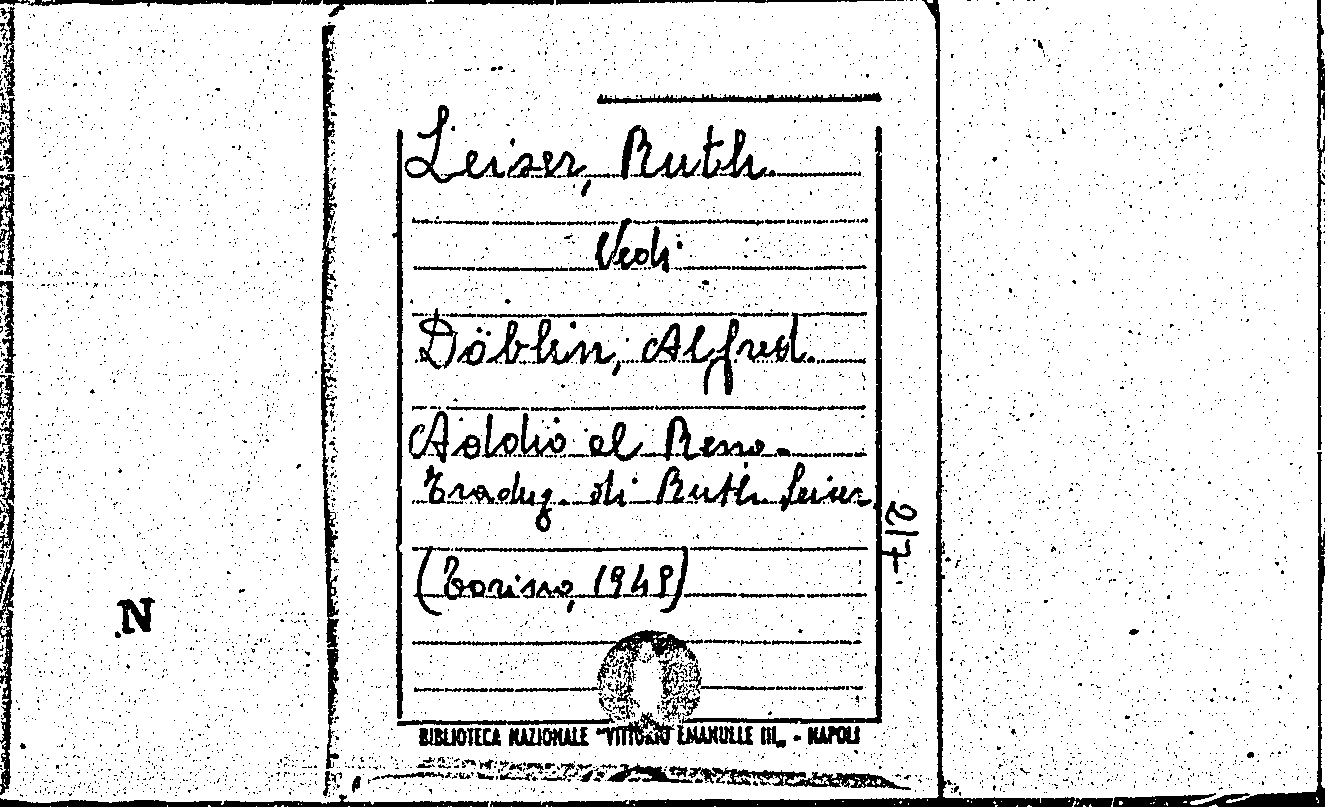 Leiser, Ruth.
Vedi
Döblin, Alfred.
Addio al Reno.
Traduz. di Ruth Leiser
(Torino, 1949)
217
N
BIBLIOTECA NAZIONALE "VITTORIO EMANUELE III„ - NAPOLI